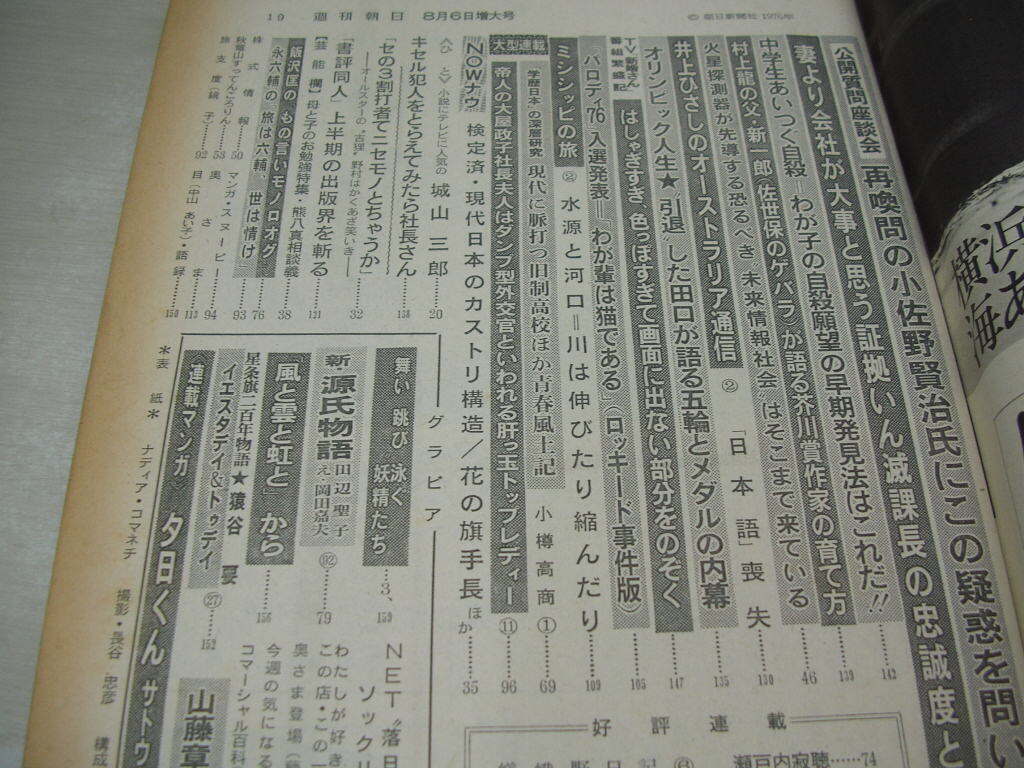 19 週刊朝日 8月6日増大号
© 朝日新聞社 1976年
公開質問座談会 再喚問の小佐野賢治氏にこの疑惑を問い
妻より会社が大事と思う証拠いん滅課長の忠誠度と 142
中学生あいつぐ自殺=わが子の自殺願望の早期発見法はこれだ!! 139
村上龍の父・新一郎(佐世保のゲバラ)が語る芥川賞作家の育て方 46
火星探測器が先導する恐るべき“未来情報社会”はそこまで来ている 130
井上ひさしのオーストラリア通信 ② 「日本語」喪失 135
オリンピック人生★“引退”した田口が語る五輪とメダルの内幕 147
TV番組繁盛記 はしゃぎすぎ、色っぽすぎて画面に出ない部分をのぞく 105
“パロディ76”入選発表=「わが輩は猫である」(ロッキード事件版)
ミシシッピの旅 ② 水源と河口=川は伸びたり縮んだり 109
学歴日本の深層研究 現代に脈打つ旧制高校ほか青春風土記 小樽高商① 69
大型連載 帝人の大屋政子社長夫人はダンプ型外交官といわれる肝っ玉トップレディー ⑪ 96
NOWナウ 検定済・現代日本のカストリ構造/花の旗手長 ほか 35
小説にテレビに人気の 城山三郎 20
キセル犯人をとらえてみたら社長さん 138
「セの3割打者でニセモノとちゃうか」 32
―オールスターの“吉理・野村はかくあざ笑いき”―
「書評同人」上半期の出版界を斬る 131
【芸能欄】母と子のお勉強特集・熊八真相談義
飯沢匡の もの言いモノロオグ 38
永六輔の 旅は六輔、世は情け 76
株式情報 50 マンガ・スヌーピー 93
秋竜山すってんころりん 53 奥さま 94
旅支度(鏡子) 92 目(中山あい子)・語録 113 150
グラビア
舞い 跳び 泳ぐ 妖精たち 3、159
新・源氏物語 田辺聖子 え・岡田嘉夫 79
「風と雲と虹と」から 156
星条旗二百年物語★猿谷要
イエスタデイ&トゥデイ ㉗ 152
連載マンガ 夕日くん サトウ
*表紙* ナディア・コマネチ 撮影・長谷忠彦 構成
NET“落日
ソックリ
わたしが好き
この店・この一
奥さま登場
今週の気になる
コマーシャル百科
山藤章
好評連載
瀬戸内寂聴……74
横浜
海あ